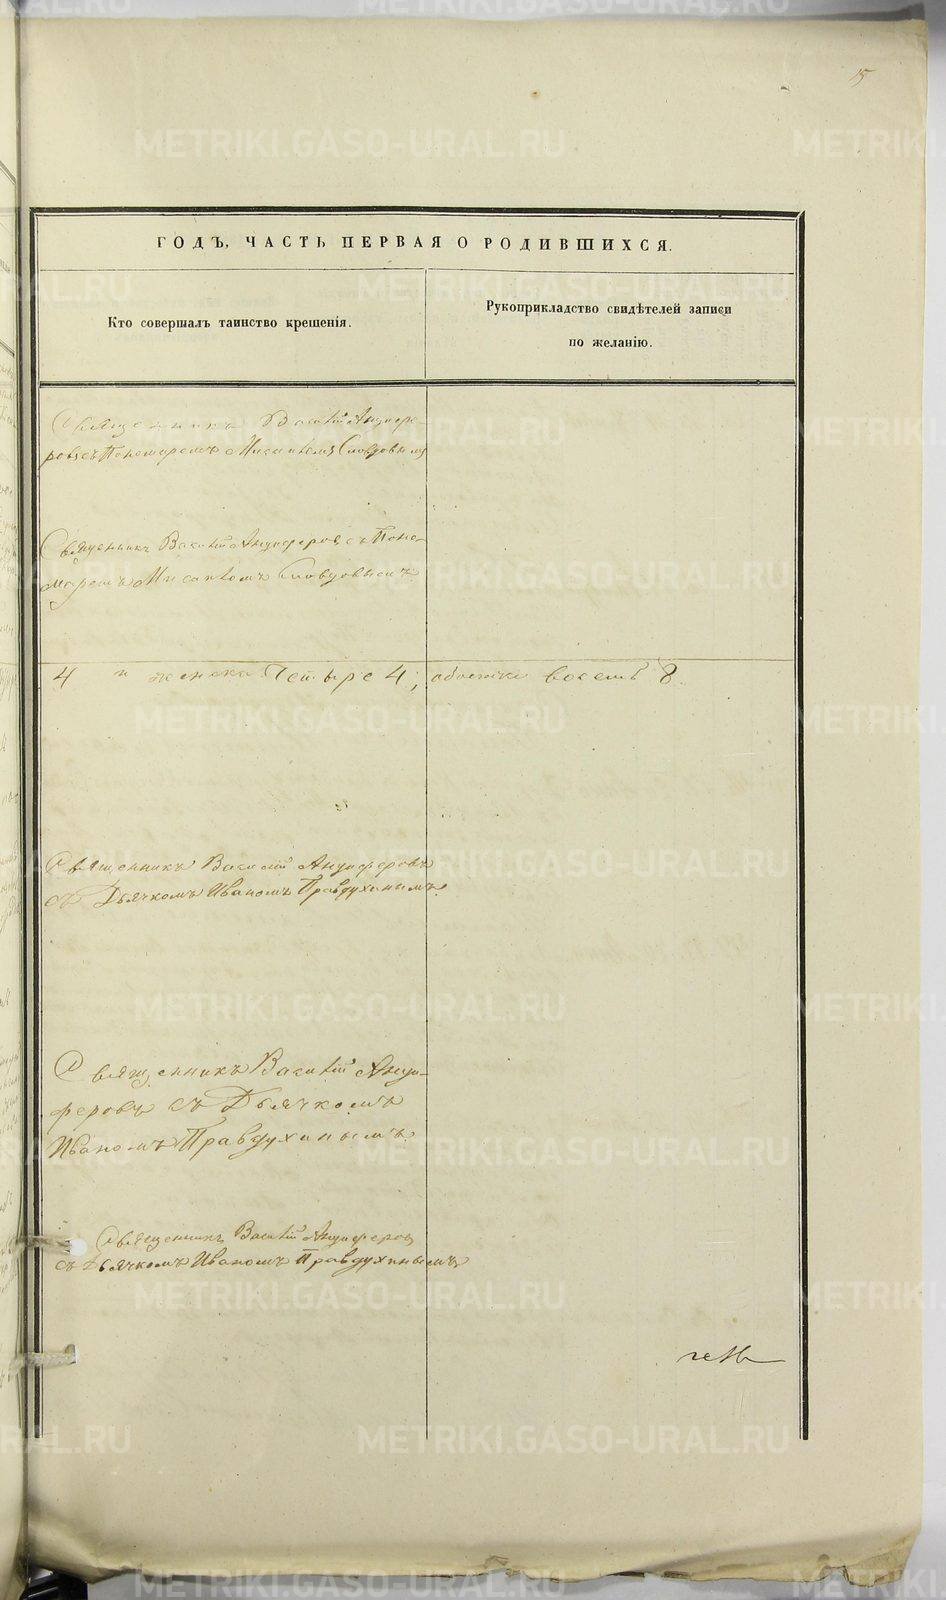 15
ГОДЪ, ЧАСТЬ ПЕРВАЯ О РОДИВШИХСЯ.
Кто совершалъ таинство крещенія.
Рукоприкладство свидѣтелей записи
по желанію.
Священникъ Василій Анциферовъ
съ Пономаремъ Словцовымъ
Священникъ Василій Анциферовъ съ Поно-
маремъ Словцовымъ
4 и женска Четыре 4; обоего восемь 8.
Священникъ Василій Анциферовъ
съ Дьячкомъ Иваномъ Правдухинымъ
Священникъ Василій Анци-
феровъ съ Дьячкомъ
Иваномъ Правдухинымъ
Священникъ Василій Анциферовъ
съ Дьячкомъ Иваномъ Правдухинымъ
METRIKI.GASO-URAL.RU